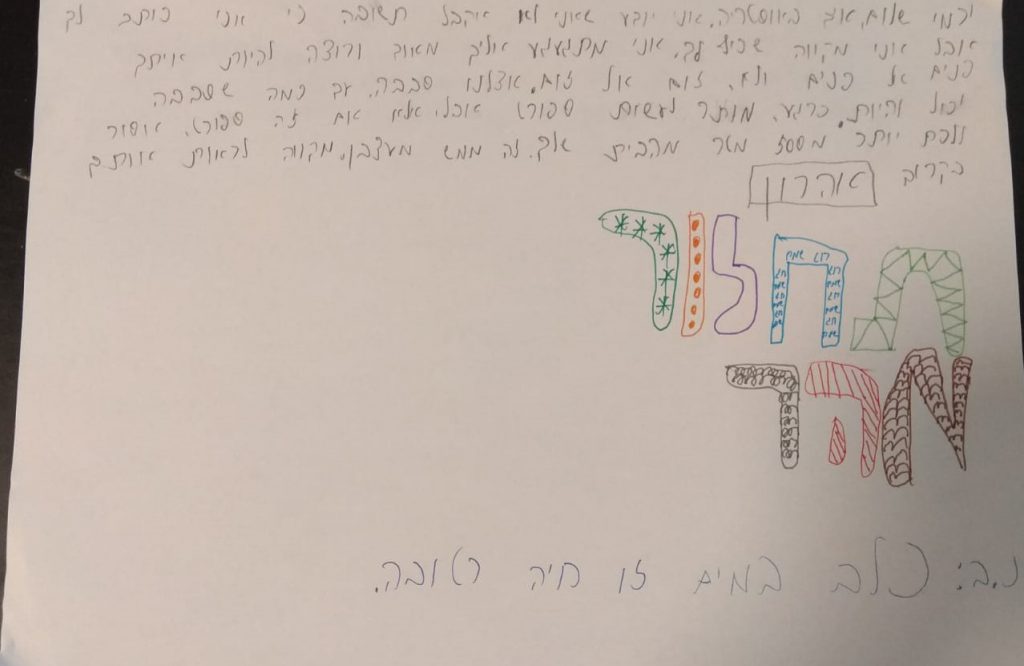 ירמי שלום, באוסטריה. אני יודע שאני לא אקבל תשובה כי אני כותב לך
אבל אני מקווה שכיף לך, אני מתגעגע אליך מאוד ורוצה להיות איתך
פנים אל פנים ולא זום אל זום. אצלנו סבבה, עד כמה שסבבה
יכול להיות. כרגע, מותר לעשות ספורט אבל אלא אם זה ספורט, אסור
ללכת יותר מ500 מטר מהבית שלך. זה ממש מעצבן. מקווה לראות אותך
בקרוב
אהרון
תחזור
מהר
נ.ב: כלב במים זו חיה רטובה.